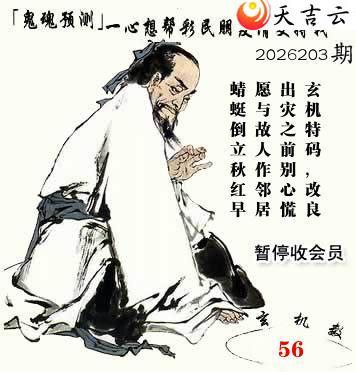 天吉云
「鬼魂预测」一心想帮彩民朋友
2026203期
玄机特码,改良
出灾之前别心慌
愿与故人作邻居
蜻蜓倒立秋红早
暂停收会员
玄机数
56